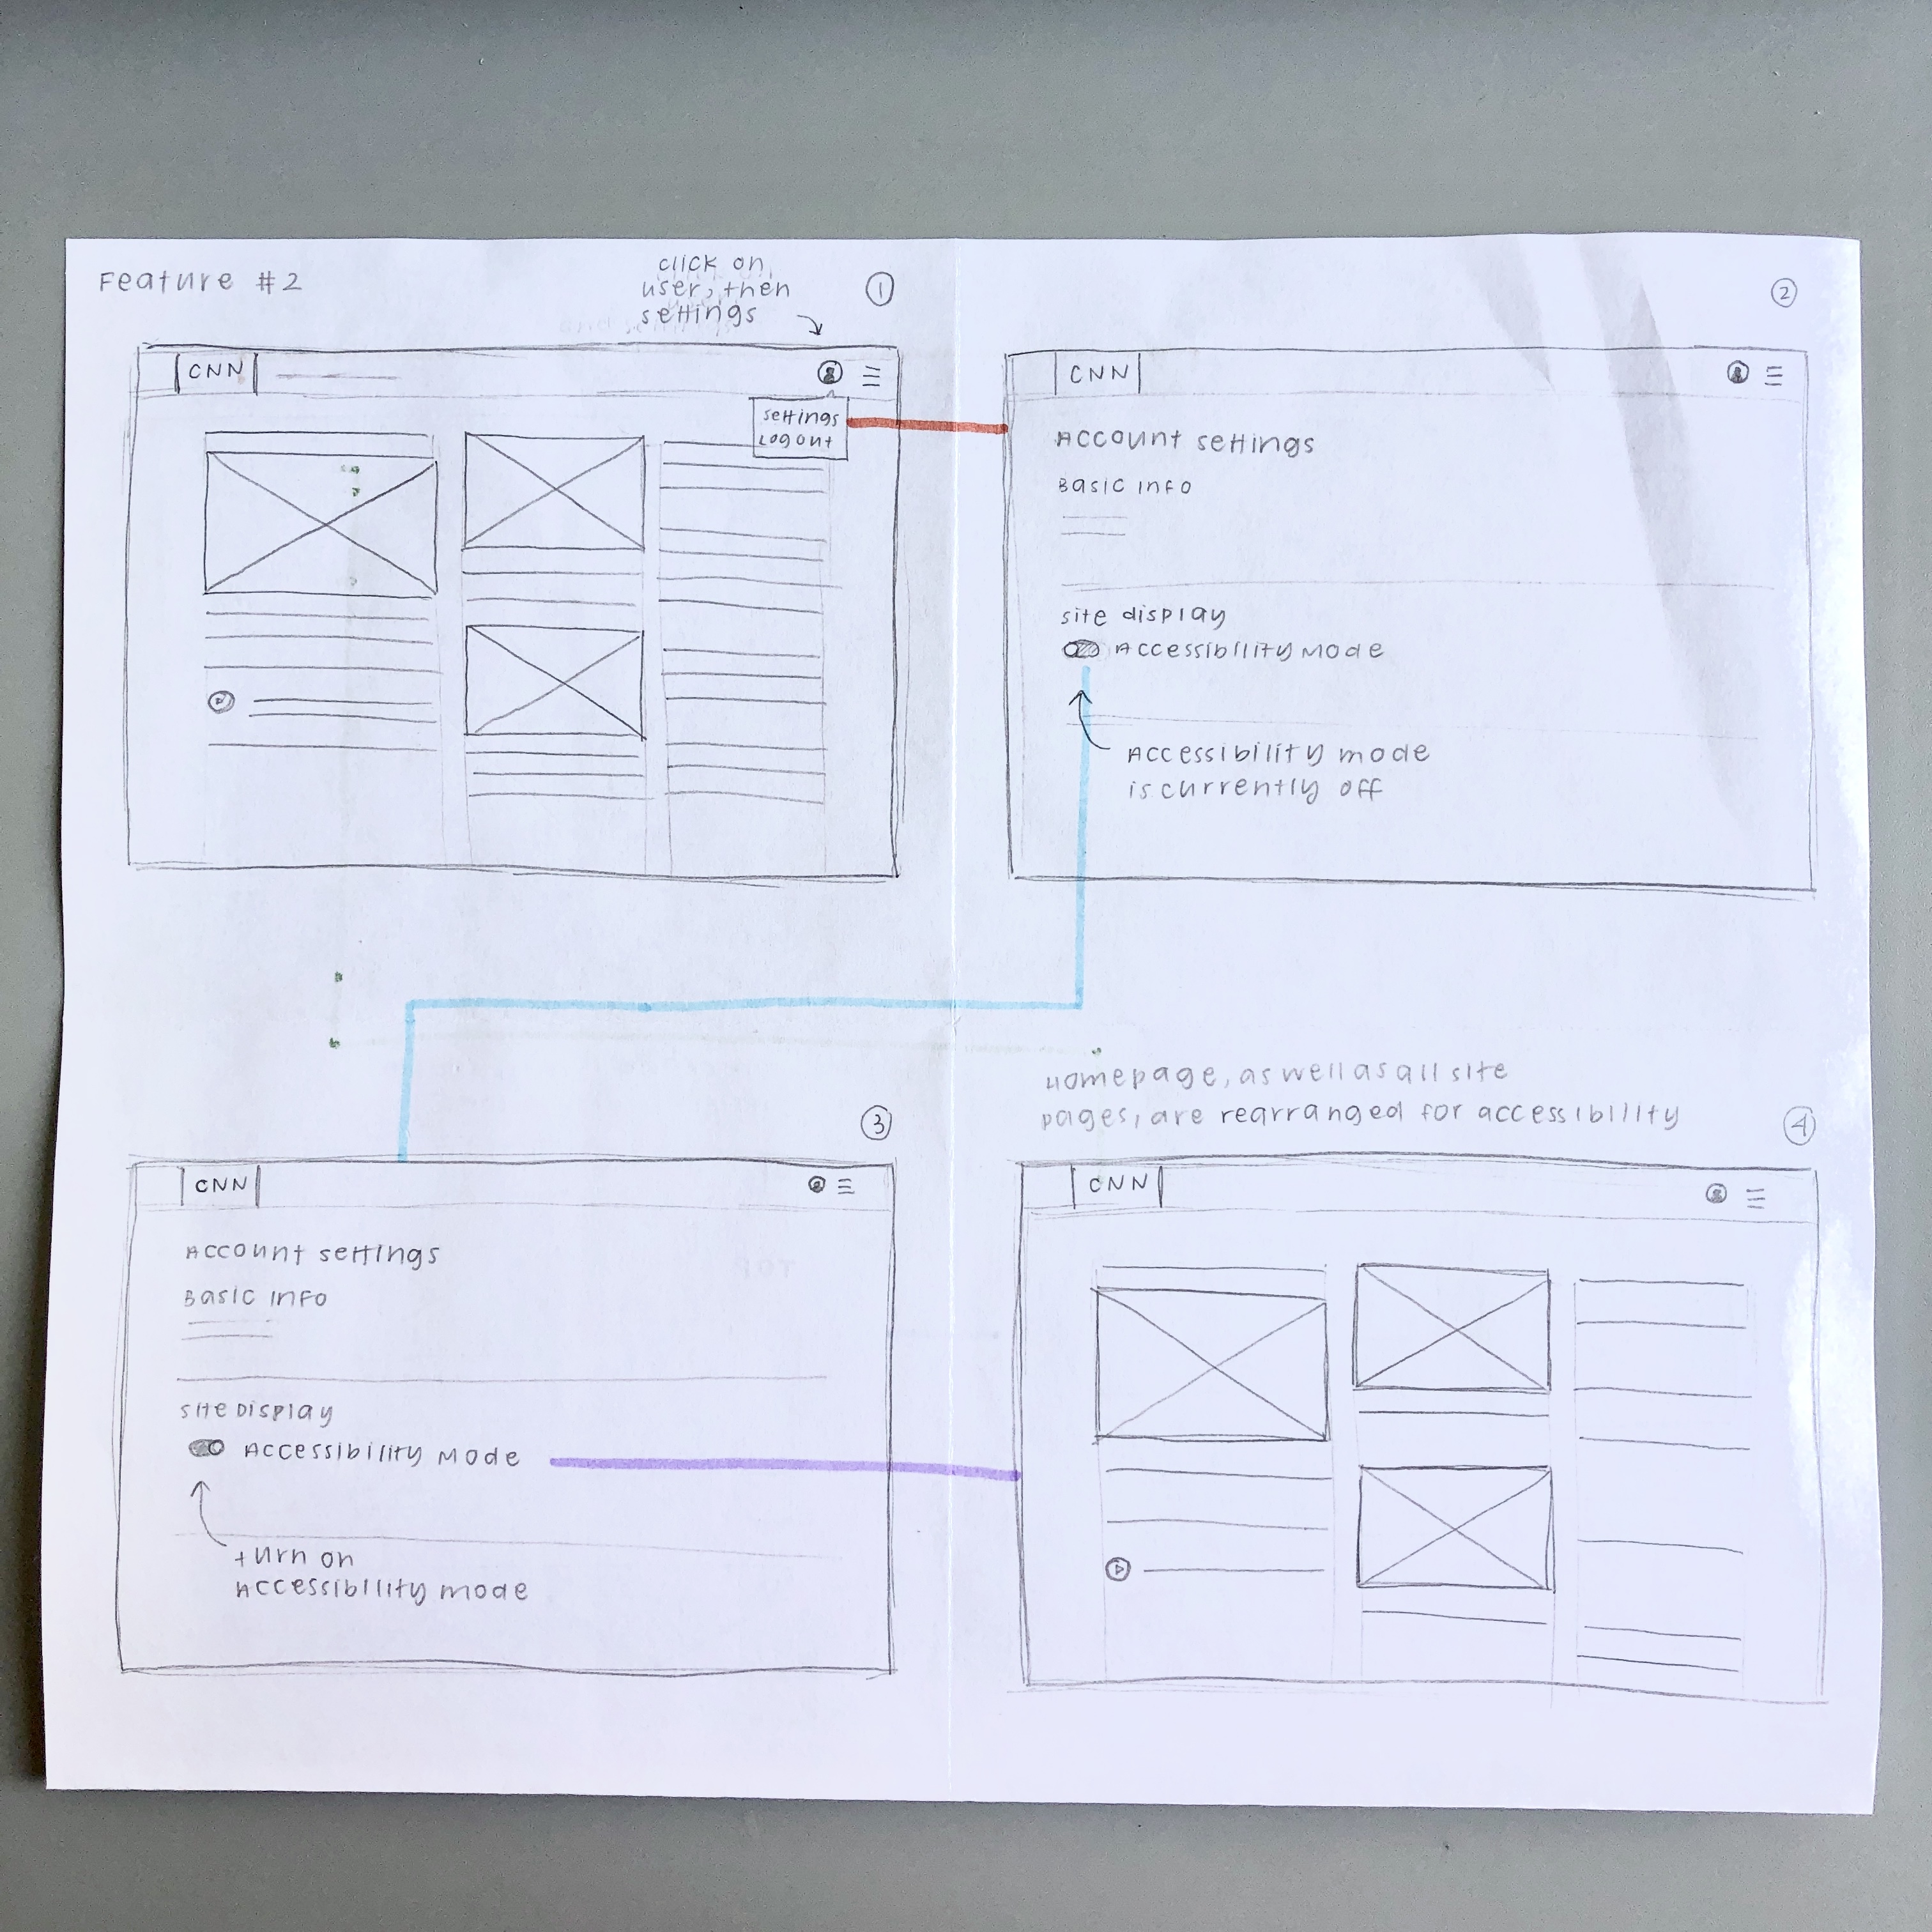 Feature #2
click on
user, then
settings
1
CNN
settings
Logout
2
CNN
Account settings
Basic Info
site display
Accessibility Mode
Accessibility mode
is currently off
3
CNN
Account settings
Basic Info
Site Display
Accessibility Mode
turn on
Accessibility mode
Homepage, as well as all site
pages, are rearranged for accessibility
4
CNN